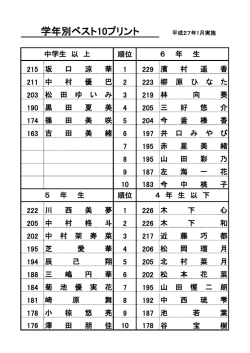 学年別ベスト10プリント 平成27年1月実施
中学生以上 順位 ６年生
215 坂口涼華 1 229 濱村遥香
211 中村優巴 2 223 柳原ひなた
203 松田ゆいみ 3 219 林向葵
190 黒田夏美 4 205 三好悠介
174 篠田美咲 5 204 今釜楱香
163 吉田美緒 6 197 井口みやび
7 195 赤星美緒
8 195 山田彩乃
9 187 左海一花
10 183 今中桃子
５年生 順位 ４年生以下
222 川西美夢 1 226 木下心
205 中村柊斗 2 226 木下和
202 中村架寿菜 3 217 近藤巧都
195 芝愛華 4 206 松岡瑠月
194 辰己翔 5 205 北村菜月
188 三嶋円華 6 202 松本花菜
184 菊池優実花 7 195 山田惺二朗
181 崎原舞 8 192 中西琉雫
178 小椋悠亮 9 187 池若葉
176 澤田朋佳 10 178 谷宝樹